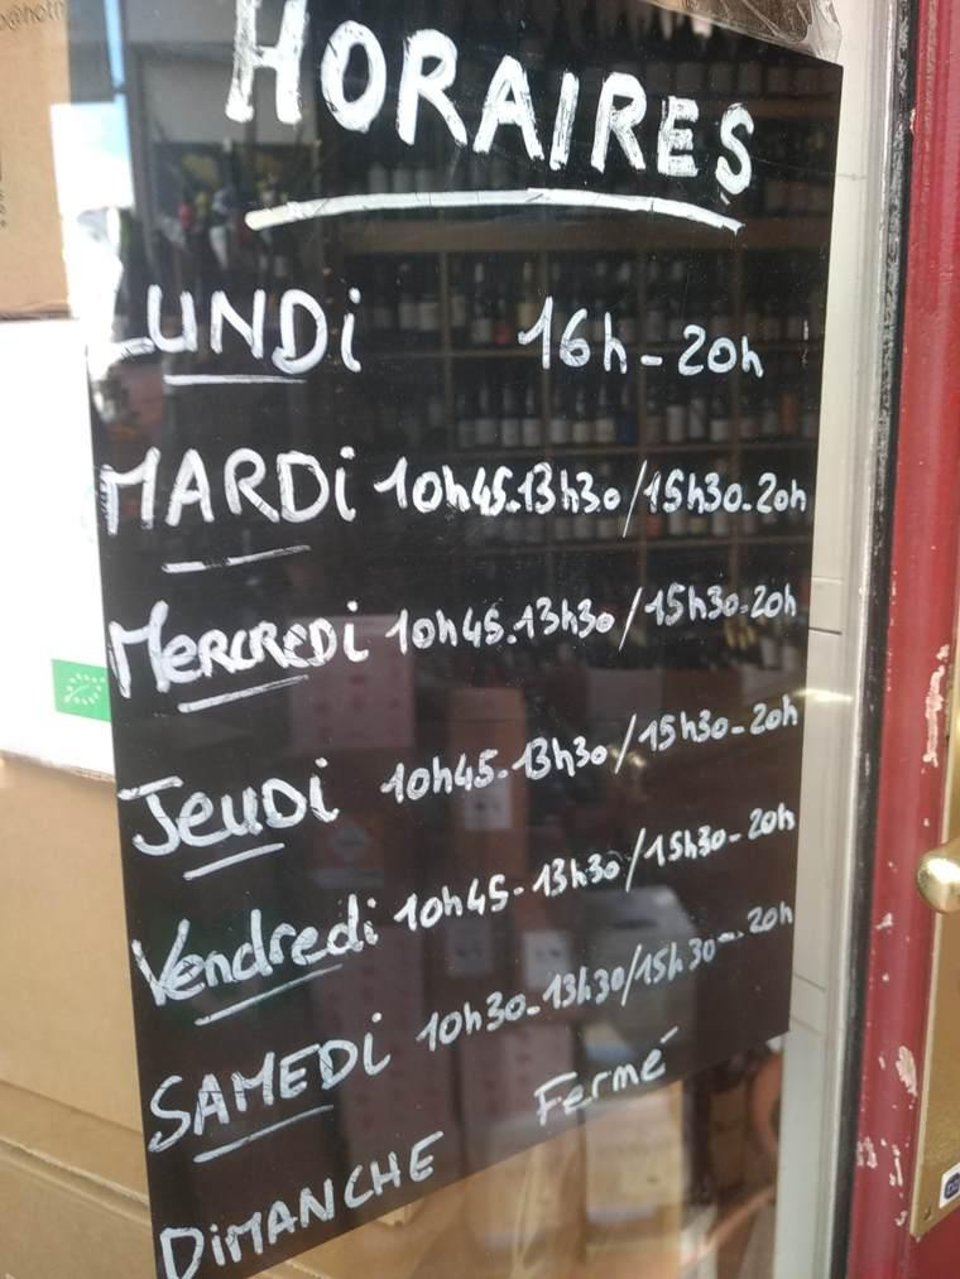 HORAIRES
LUNDi 16h - 20h
MARDi 10h45-13h30/15h30-20h
MeRCREDi 10h45-13h30/15h30-20h
JeuDi 10h45-13h30/15h30-20h
Vendredi 10h45-13h30/15h30-20h
SAMEDi 10h30-13h30/15h30-20h
DiMANCHE Fermé